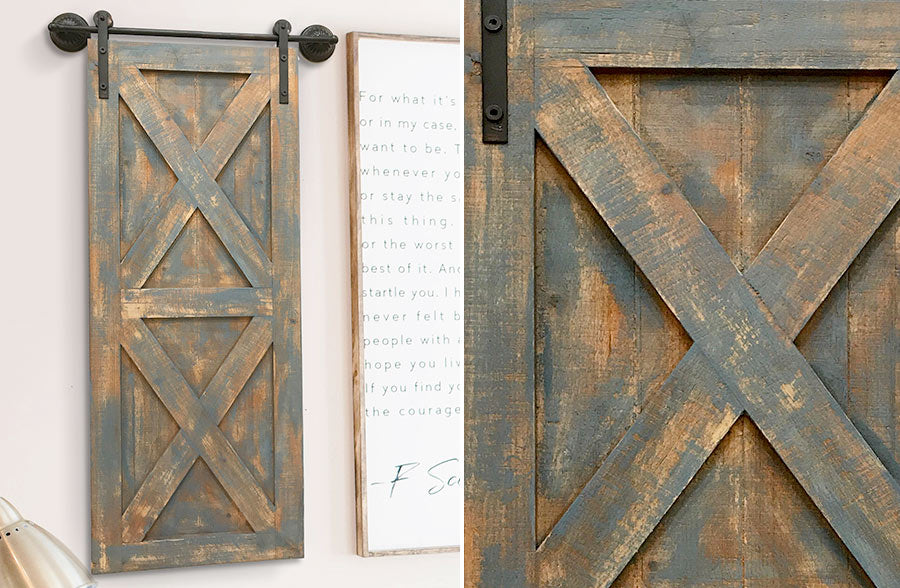 For what it's
or in my case,
want to be. T
whenever yo
or stay the sa
this thing.
or the worst
best of it. And
startle you. I h
never felt b
people with a
hope you liv
If you find yo
the courage
F Sc